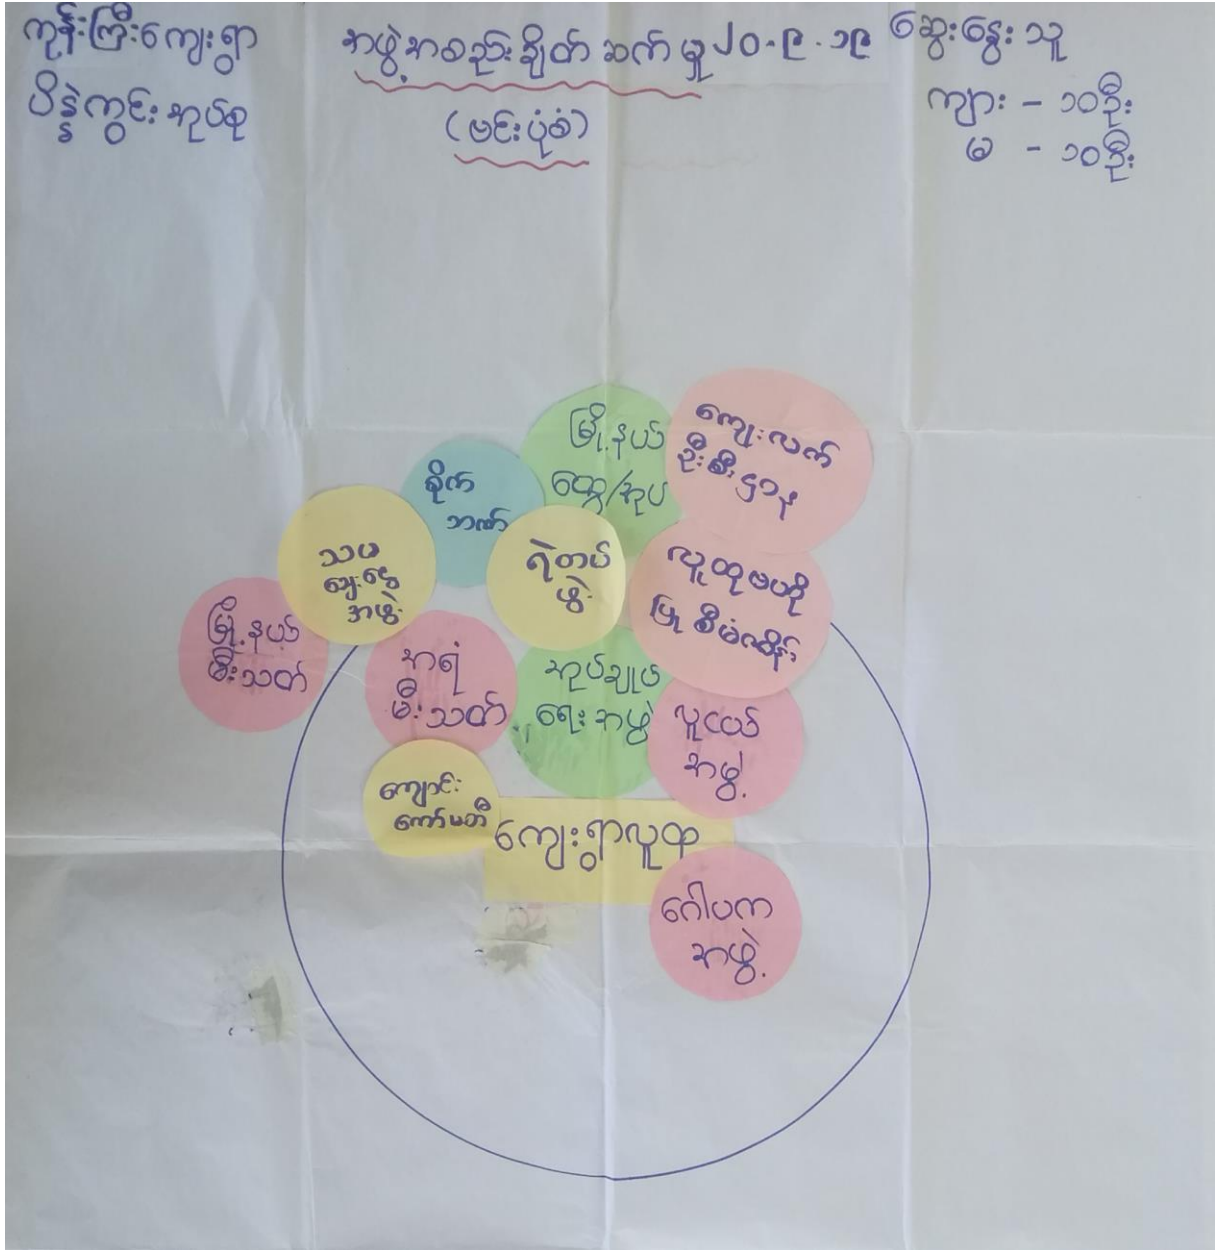 ကုန်းကြီးကျေးရွာ
ပိန္နဲကွင်းအုပ်စု
အဖွဲ့အစည်းချိတ်ဆက်မှု ၂၀.၉.၁၉
(ဗင်းပုံစံ)
ဆွေးနွေးသူ
ကျား - ၁၀ဦး
မ - ၁၀ဦး
မြို့နယ်
ထွေ/အုပ်
ကျေးလက်
ဦးစီးဌာန
စိုက်
ဘဏ်
သမ
ချေးငွေ
အဖွဲ့
ရဲတပ်
ဖွဲ့
လူထုဗဟို
ပြုစီမံကိန်း
မြို့နယ်
မီးသတ်
အရံ
မီးသတ်
အုပ်ချုပ်
ရေးအဖွဲ့
လူငယ်
အဖွဲ့
ကျောင်း
ကော်မတီ
ကျေးရွာလူထု
ဂေါပက
အဖွဲ့